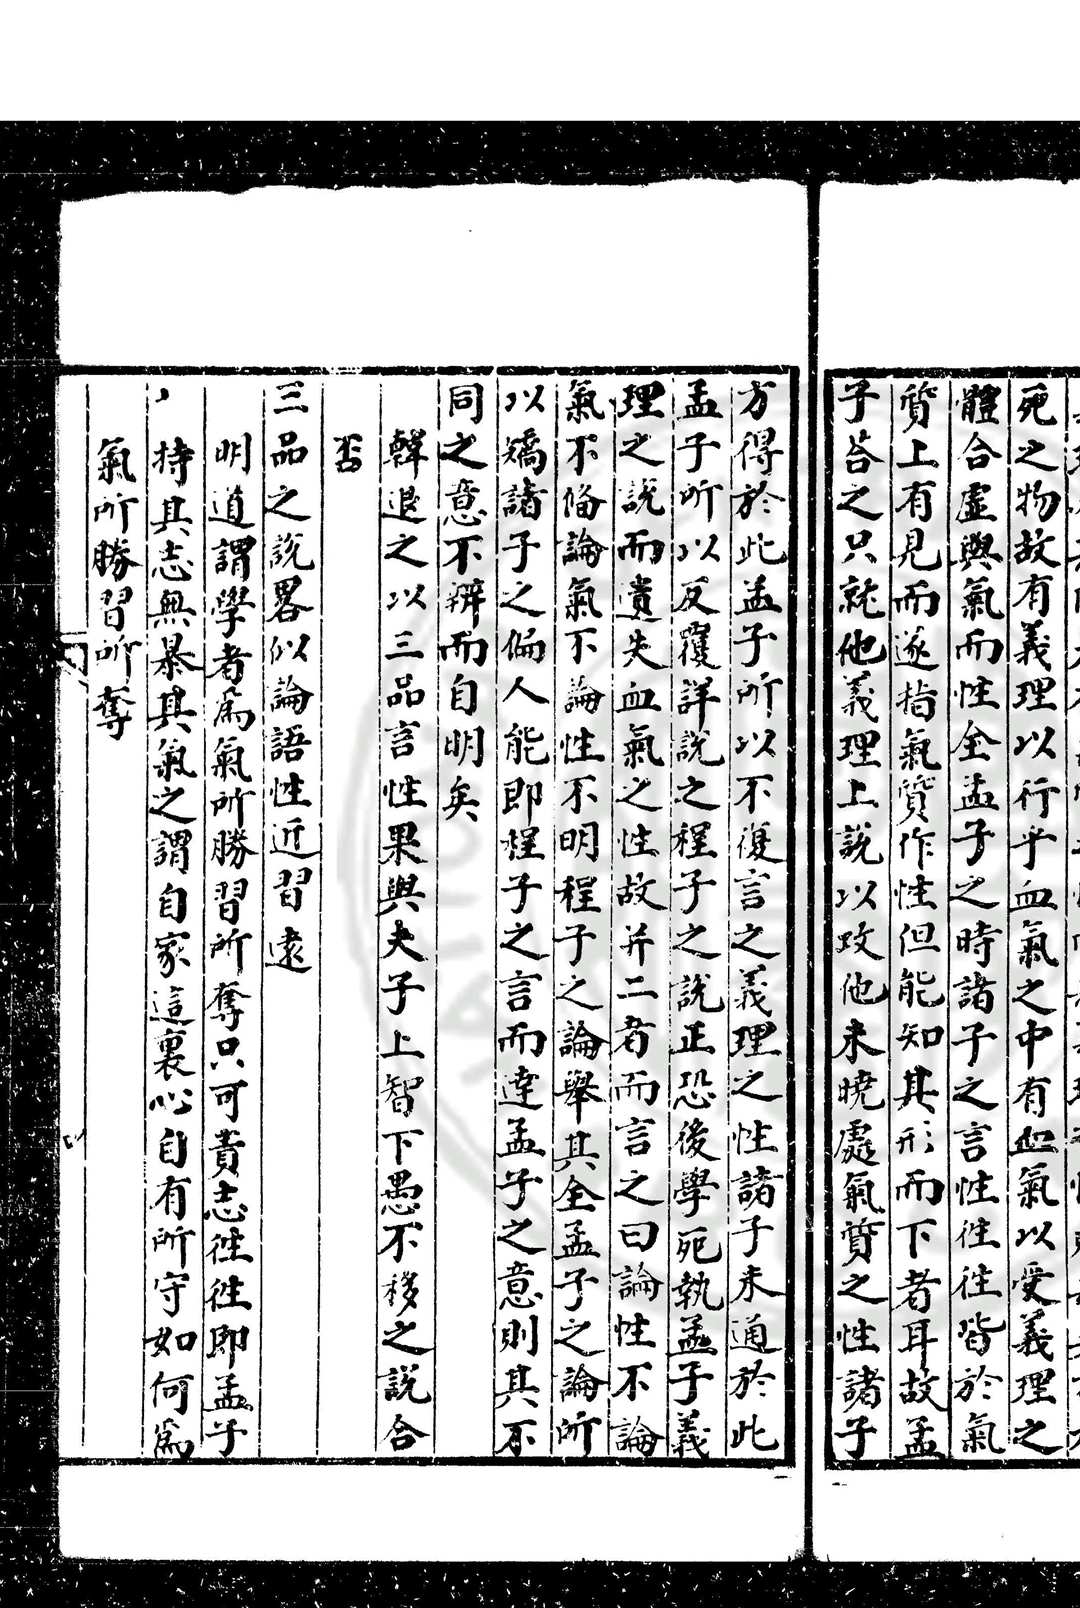 死之物故有義理以行乎血氣之中有血氣以受義理之
體合虛與氣而性全孟子之時諸子之言性徃徃皆於氣
質上有見而遂指氣質作性但能知其形而下者耳故孟
子荅之只就他義理上說以攻他未曉處氣質之性諸子
方得於此孟子所以不復言之義理之性諸子未通於此
孟子所以反覆詳說之程子之說正恐後學死執孟子義
理之說而遺失血氣之性故并二者而言之曰論性不論
氣不俻論氣不論性不明程子之論舉其全孟子之論所
以矯諸子之偏人能即程子之言而達孟子之意則其不
同之意不辨而自明矣
韓退之以三品言性果與夫子上智下愚不移之說合
否
三品之說畧似論語性近習遠
明道謂學者爲氣所勝習所奪只可責志徃徃即孟子
持其志無暴其氣之謂自家這裏心自有所守如何爲
氣所勝習所奪